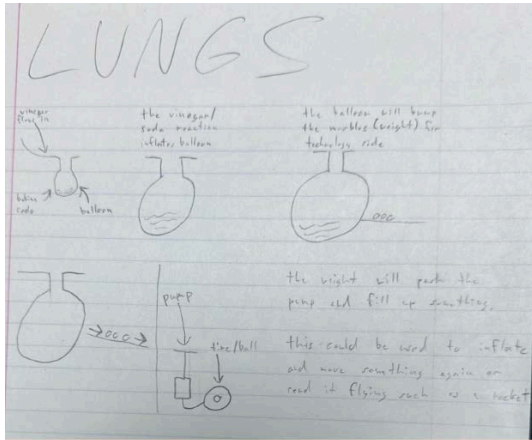 LUNGS
vinegar
flows in
baking
soda
balloon
the vinegar/
soda reaction
inflates balloon
the balloon will bump
the marbles (weight) for
technology side
pump
tire/ball
the weight will push the
pump and fill up something.
this could be used to inflate
and move something again or
send it flying such as a rocket